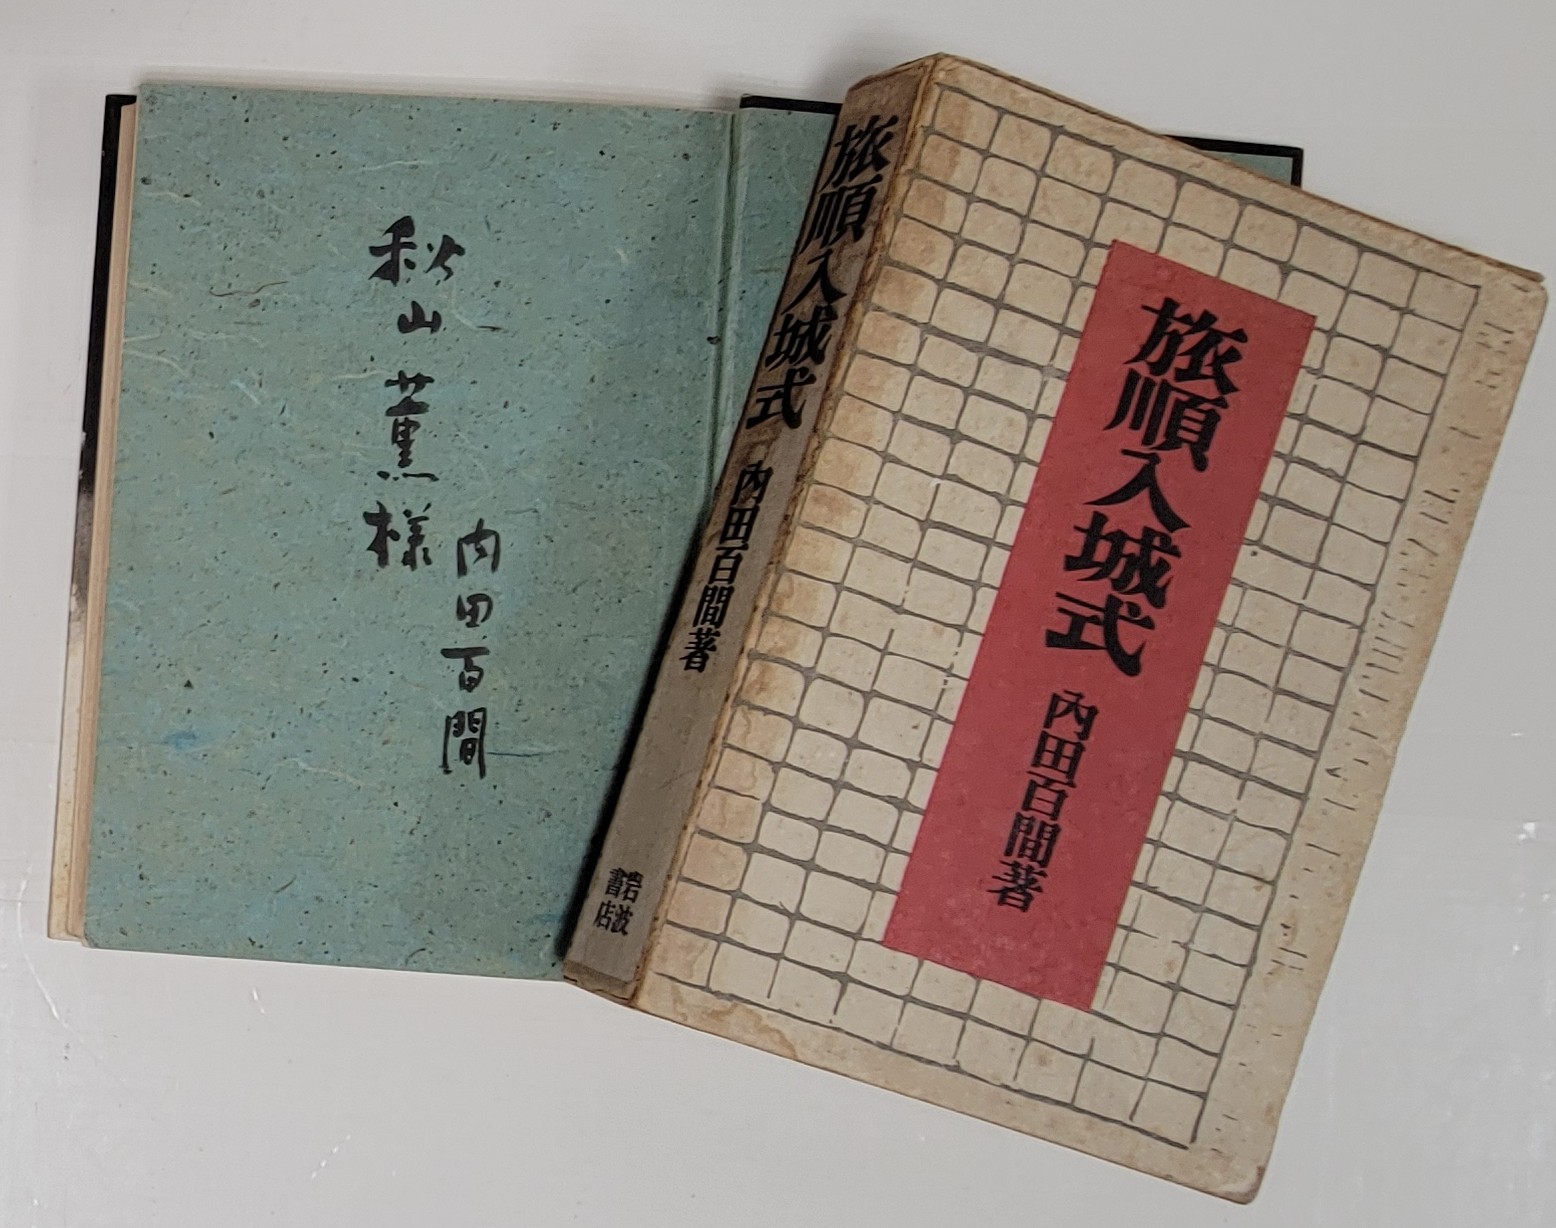 旅順入城式
内田百間著
旅順入城式
内田百間著
岩波書店
秋山薫様
内田百間